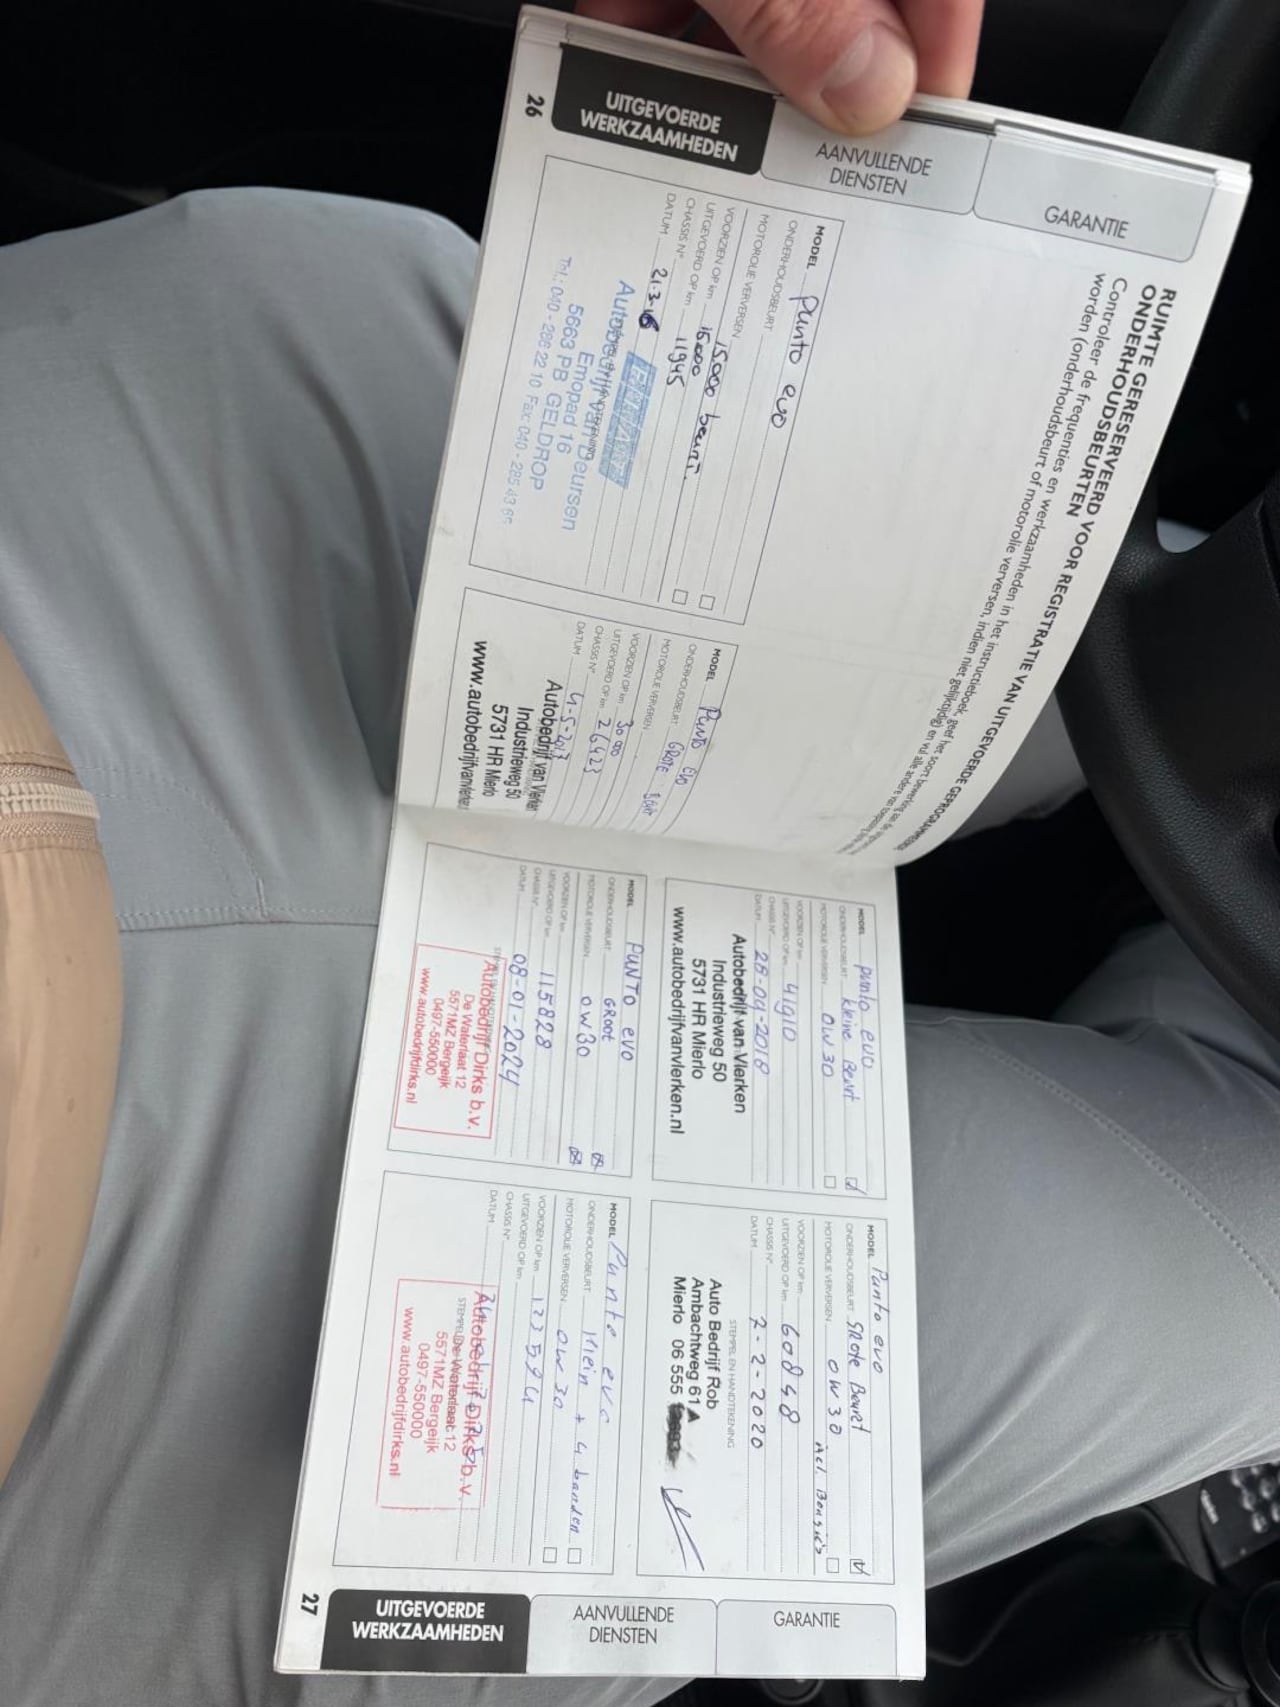 26
UITGEVOERDE
WERKZAAMHEDEN
AANVULLENDE
DIENSTEN
GARANTIE
RUIMTE GERESERVEERD VOOR REGISTRATIE VAN UITGEVOERDE GEPROGRAMMEERDE
ONDERHOUDSBEURTEN
Controleer de frequenties en werkzaamheden in het instructieboek, geef het soort
worden (onderhoudsbeurt of motorolie verversen, indien niet gelijktijdig) en vul alle andere
MODEL Punto evo
ONDERHOUDSBEURT
MOTOROLIE VERVERSEN
VOORZIEN OP km 15000 beurt.
UITGEVOERD OP km 15000
CHASSIS N° 11945
DATUM 21-3-16
Autobedrijf van Beursen
Emopad 16
5663 PB GELDROP
Tel.: 040 - 286 22 10 Fax: 040 - 285 43 65
MODEL Punto Evo
ONDERHOUDSBEURT GROTE Beurt
MOTOROLIE VERVERSEN
VOORZIEN OP km 30 000
UITGEVOERD OP km 26423
CHASSIS N°
DATUM 4-5-2017
Autobedrijf van Vlerken
Industrieweg 50
5731 HR Mierlo
www.autobedrijfvanvlerken
MODEL punto evo
ONDERHOUDSBEURT kleine Beurt
MOTOROLIE VERVERSEN 0W30
VOORZIEN OP km
UITGEVOERD OP km 41910
CHASSIS N°
DATUM 28-09-2018
Autobedrijf van Vlerken
Industrieweg 50
5731 HR Mierlo
www.autobedrijfvanvlerken.nl
MODEL Punto evo
ONDERHOUDSBEURT GRote Beurt
MOTOROLIE VERVERSEN 0W30 incl. Bougie's
VOORZIEN OP km
UITGEVOERD OP km 60848
CHASSIS N°
DATUM 7-2-2020
STEMPEL EN HANDTEKENING
Auto Bedrijf Rob
Ambachtweg 61 A
Mierlo 06 555
MODEL PUNTO evo
ONDERHOUDSBEURT GROOT
MOTOROLIE VERVERSEN 0W30
VOORZIEN OP km
UITGEVOERD OP km 115828
CHASSIS N°
DATUM 08-01-2024
Autobedrijf Dirks b.v.
De Waterlaat 12
5571MZ Bergeijk
0497-550000
www.autobedrijfdirks.nl
MODEL Punto evo
ONDERHOUDSBEURT Klein + 4 banden
MOTOROLIE VERVERSEN 0W30
VOORZIEN OP km 123594
UITGEVOERD OP km
CHASSIS N°
DATUM
Autobedrijf Dirks b.v.
De Waterlaat 12
5571MZ Bergeijk
0497-550000
www.autobedrijfdirks.nl
27
UITGEVOERDE
WERKZAAMHEDEN
AANVULLENDE
DIENSTEN
GARANTIE